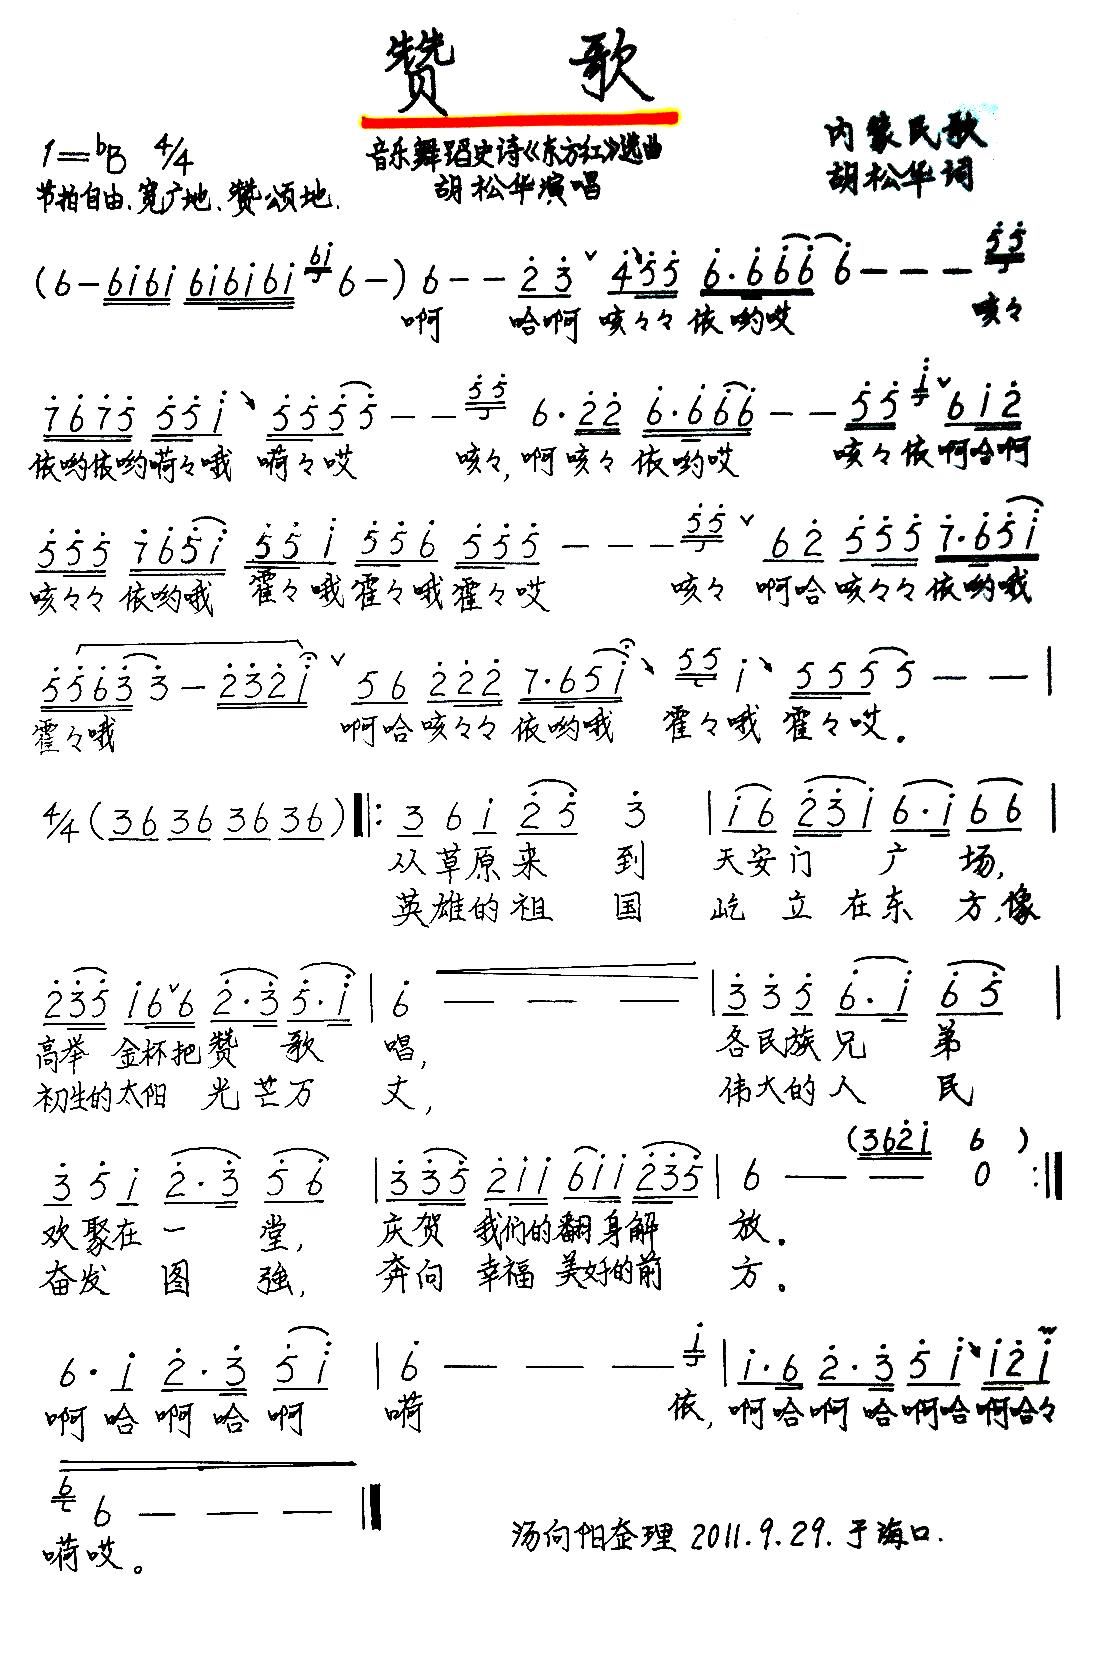 赞 歌
1=♭B 4/4
音乐舞蹈史诗《东方红》选曲
内蒙民歌
节拍自由、宽广地、赞颂地.
胡松华演唱
胡松华词
(6-6i6i 6i6i6i 6i 6-) 6-- 2 3 ˇ 4 5 5 6·6 6 6 6--- 5 5
啊 哈啊 咳々々依哟哎 咳々
7 6 7 5 5 5 i 5 5 5 5-- 5 5 6·2 2 6·6 6 6-- 5 5 i ˇ 6 i 2
依哟依哟嗬々哦 嗬々哎 咳々,啊咳々 依哟哎 咳々依啊哈啊
5 5 5 7 6 5 i 5 5 i 5 5 6 5 5 5--- 5 5 ˇ 6 2 5 5 5 7·6 5 i
咳々々 依哟哦 霍々哦霍々哦霍々哎 咳々 啊哈咳々々依哟哦
5 5 6 3 3-2 3 2 i ˇ 5 6 2 2 2 7·6 5 i 5 5 i 5 5 5 5-- |
霍々哦 啊哈咳々々 依哟哦 霍々哦 霍々哎。
4/4 (36 36 36 36) ‖: 3 6 i 2 5 3 | i 6 2 3 i 6·i 6 6 |
从草原来 到 天安门 广 场,
英雄的祖 国 屹 立 在东 方,像
2 3 5 i 6 ˇ 6 2·3 5·i | 6 - - - | 3 3 5 6·i 6 5 |
高举 金杯把赞 歌 唱, 各民族兄 弟
初生的太阳 光 芒万 丈, 伟大的人 民
(3 6 2 i 6 )
3 5 i 2·3 5 6 | 3 3 5 2 i i 6 i i 2 3 5 | 6 - - 0 :‖
欢聚在 一 堂, 庆贺 我们的翻身解 放。
奋发 图 强, 奔向 幸福 美好的前 方。
6·i 2·3 5 i | 6 - - - i | i·6 2·3 5 i i 2 i
啊 哈 啊 哈 啊 嗬 依,啊哈啊 哈啊哈啊哈々
6 6 - - - ‖
嗬哎。
汤向阳整理 2011.9.29.于海口.